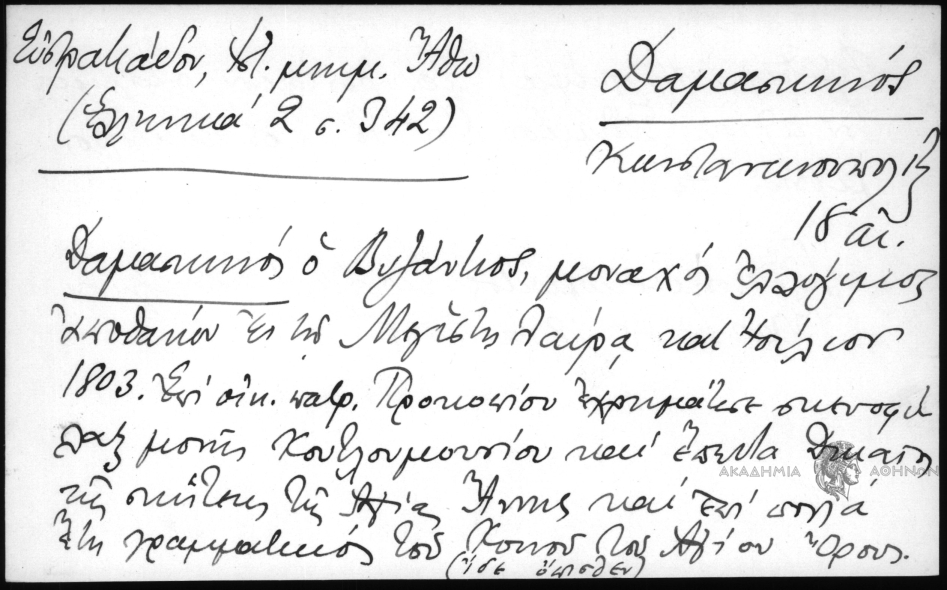 Εὐστρατιάδου, Ἁγ. μνημ. Ἄθω
(Ἑλληνικά 2 σ. 342)
Δαμασκηνός
Κωνσταντινουπολίτ
18 αἰ.
Δαμασκηνός ὁ Βυζάντιος, μοναχός ἐλλόγιμος
ἀποθανών ἐν τῇ Μεγίστῃ Λαύρᾳ κατ' Ἀπρίλιον
1803. Ἐπί οἰκ. πατρ. Προκοπίου ἐχρημάτισε σκευοφύ
λαξ μονῆς Κουτλουμουσίου καί ἔπειτα Δικαῖος
τῆς σκήτεως τῆς Ἁγίας Ἄννης καί ἐπί πολλά
ἔτη γραμματικός τοῦ Κοινοῦ τοῦ Ἁγίου Ὄρους.
(ἴδε ὄπισθεν)
ΑΚΑΔΗΜΙΑ ΑΘΗΝΩΝ